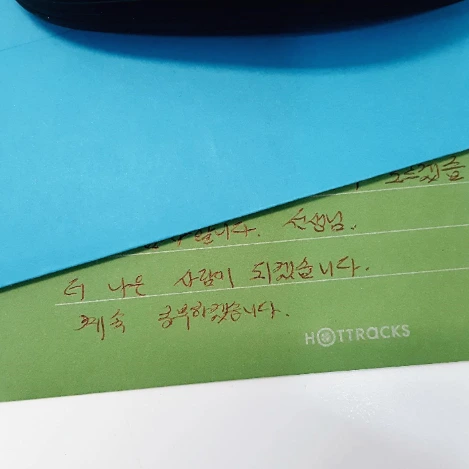 모르겠음
니다. 선생님.
더 나은 사람이 되겠습니다.
계속 공부하겠습니다.
HOTTRACKS